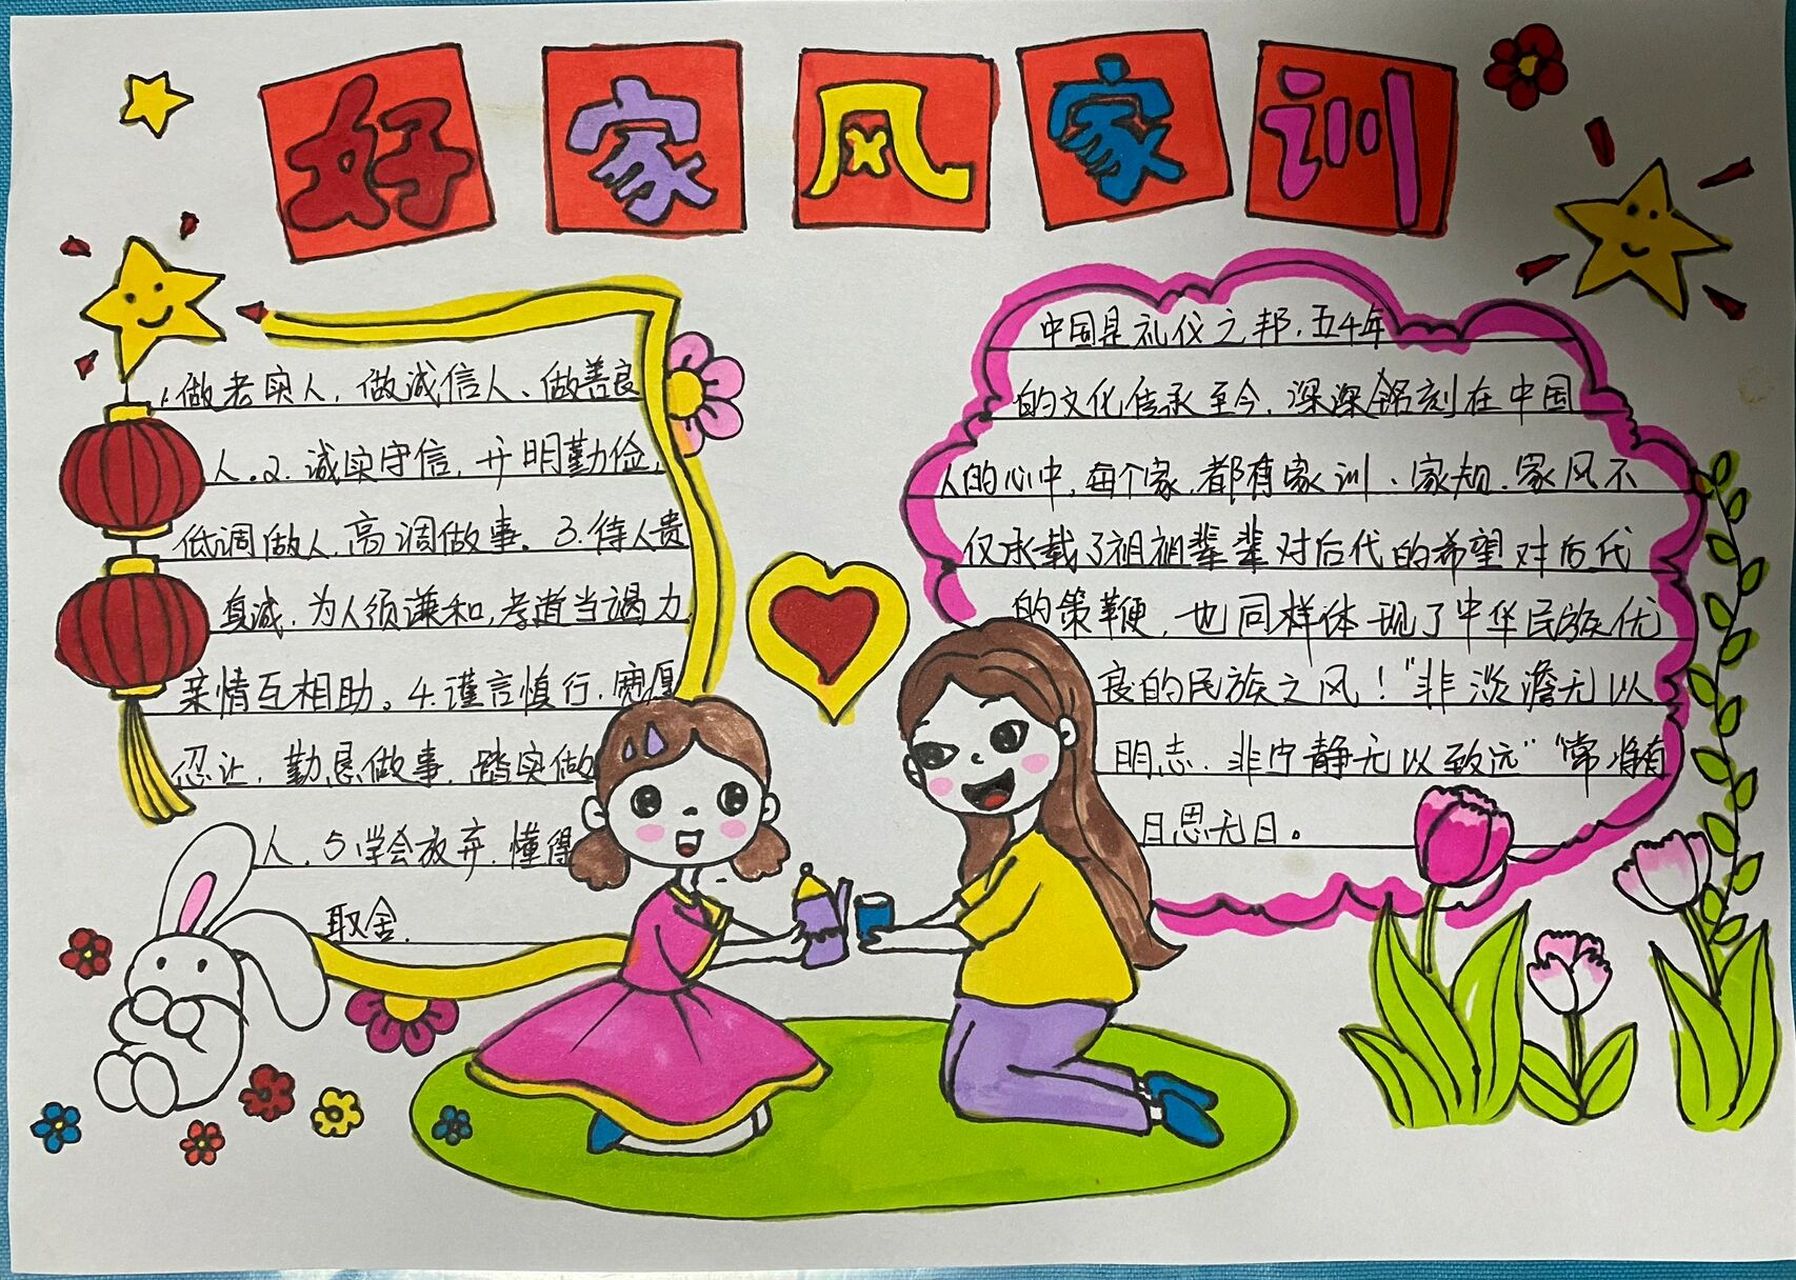 好家风家训
1.做老实人,做诚信人、做善良
人。2.诚实守信,开明勤俭,
低调做人,高调做事。3.待人贵
真诚,为人须谦和,孝道当竭力
亲情互相助。4.谨言慎行,宽厚
忍让,勤恳做事,踏实做
人,5学会放弃,懂得
取舍.
中国是礼仪之邦,五千年
的文化传承至今,深深铭刻在中国
人的心中,每个家,都有家训、家规.家风不
仅承载了祖祖辈辈对后代的希望对后代
的策鞭,也同样体现了中华民族优
良的民族之风!“非淡澹无以
明志.非宁静无以致远”“常将有
日思无日。